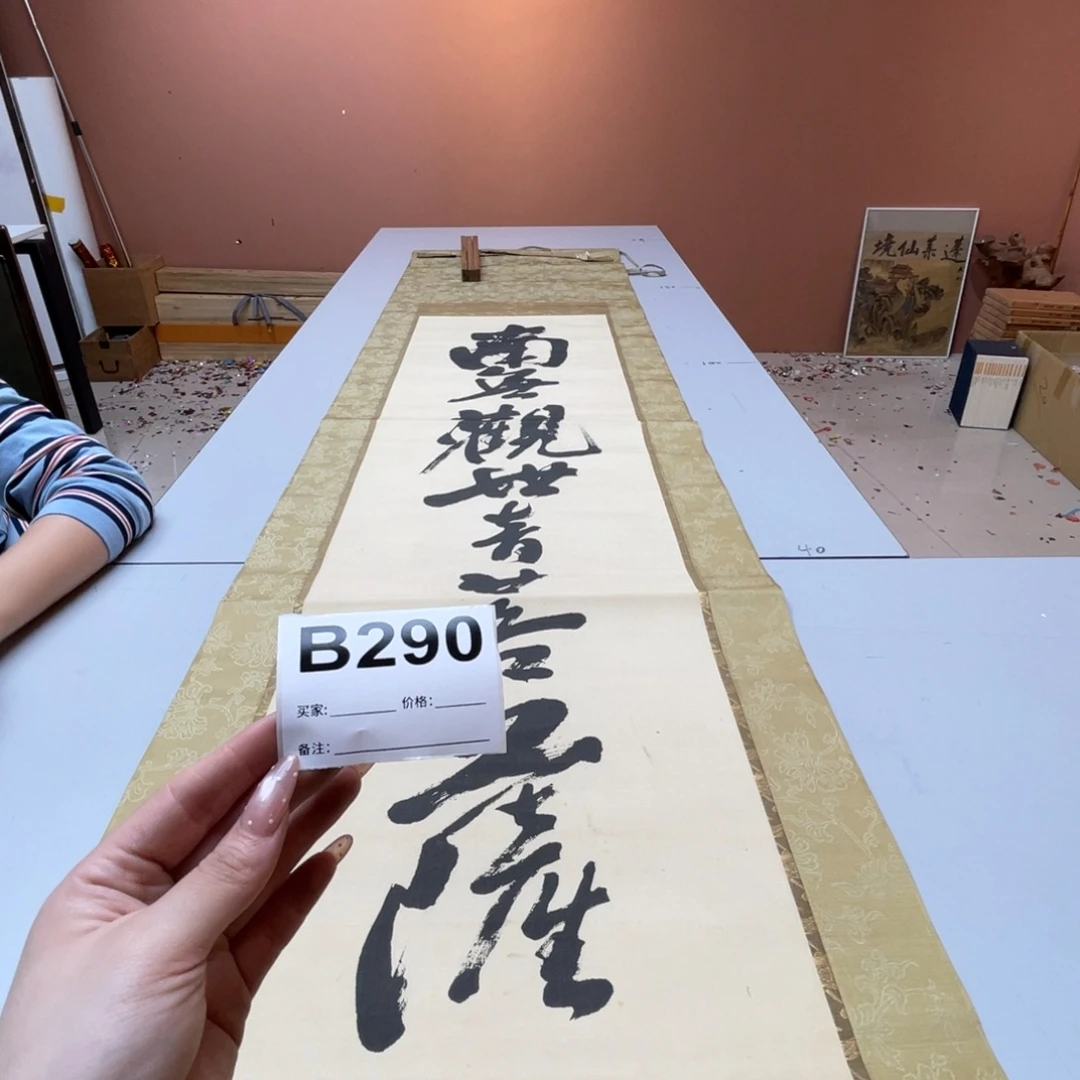 南無觀世音菩薩
B290
买家: 价格:
备注:
蓬莱仙境
40